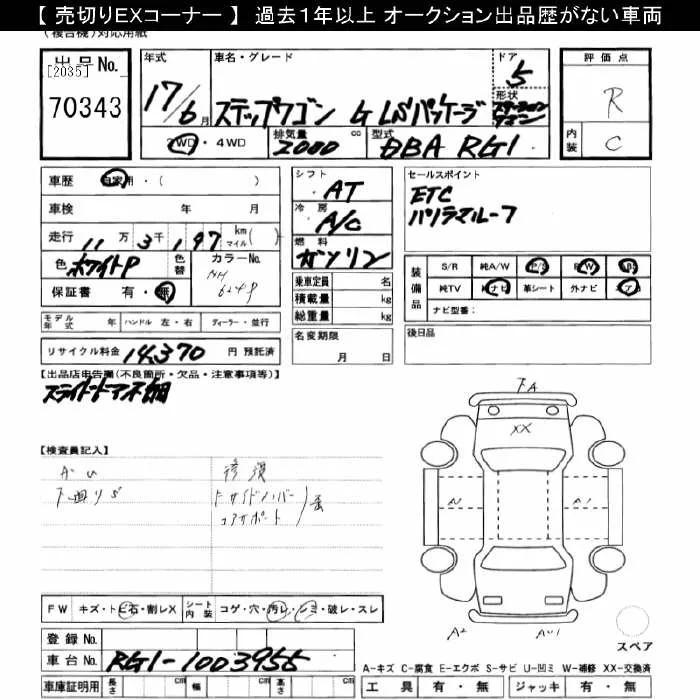 【 売切りEXコーナー 】 過去１年以上 オークション出品歴がない車両
(複合機)対応用紙
出品No. [2035] 70343
年式 17/6月
車名・グレード ステップワゴン G LSパッケージ
ドア 5
形状 ステーションワゴン
評価点 R
内装 C
2WD・4WD
排気量 2000 cc
型式 DBA RG1
車歴 自家用・( )
車検 年 月
走行 11万3千197 km マイル( )
色 ホワイトP
色替
カラーNo. NH624P
保証書 有・無
モデル年式 年 ハンドル 左・右 ディーラー・並行
リサイクル料金 14,370 円 預託済
シフト AT
冷房 A/C
燃料 ガソリン
乗車定員 名
積載量 kg
総重量 kg
名変期限 月 日
セールスポイント
ETC
パノラマルーフ
装備品
S/R 純A/W P/S P/W
純TV 純ナビ 革シート 外ナビ
ナビ型番:
後日品
【出品店申告欄(不良箇所・欠品・注意事項等)】
【検査員記入】
A・U
下廻りS
修復
コアサポート
FA
XX
A1
A2
FW キズ・ト ビ石・割レX
シート内装 コゲ・穴・汚レ・シミ・破レ・スレ
スペア
登録No.
車台No. RG1-1003955
車庫証明用 長さ cm 幅 cm 高さ cm
A-キズ C-腐食 E-エクボ S-サビ U-凹ミ W-補修 XX-交換済
工具 有・無 ジャッキ 有・無